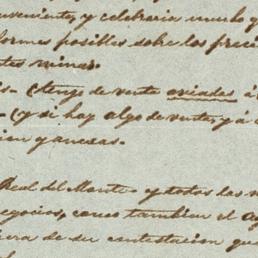 nveniente, y celebraria mucho q
formes posibles sobre los preci
tes minas.
is. (tengo de venta aviadas á
. (y si hay algo de venta, y á c
ion y anexas.
Real del Monte y todas las m
egocios, como tambien el a
era de su contestacion que